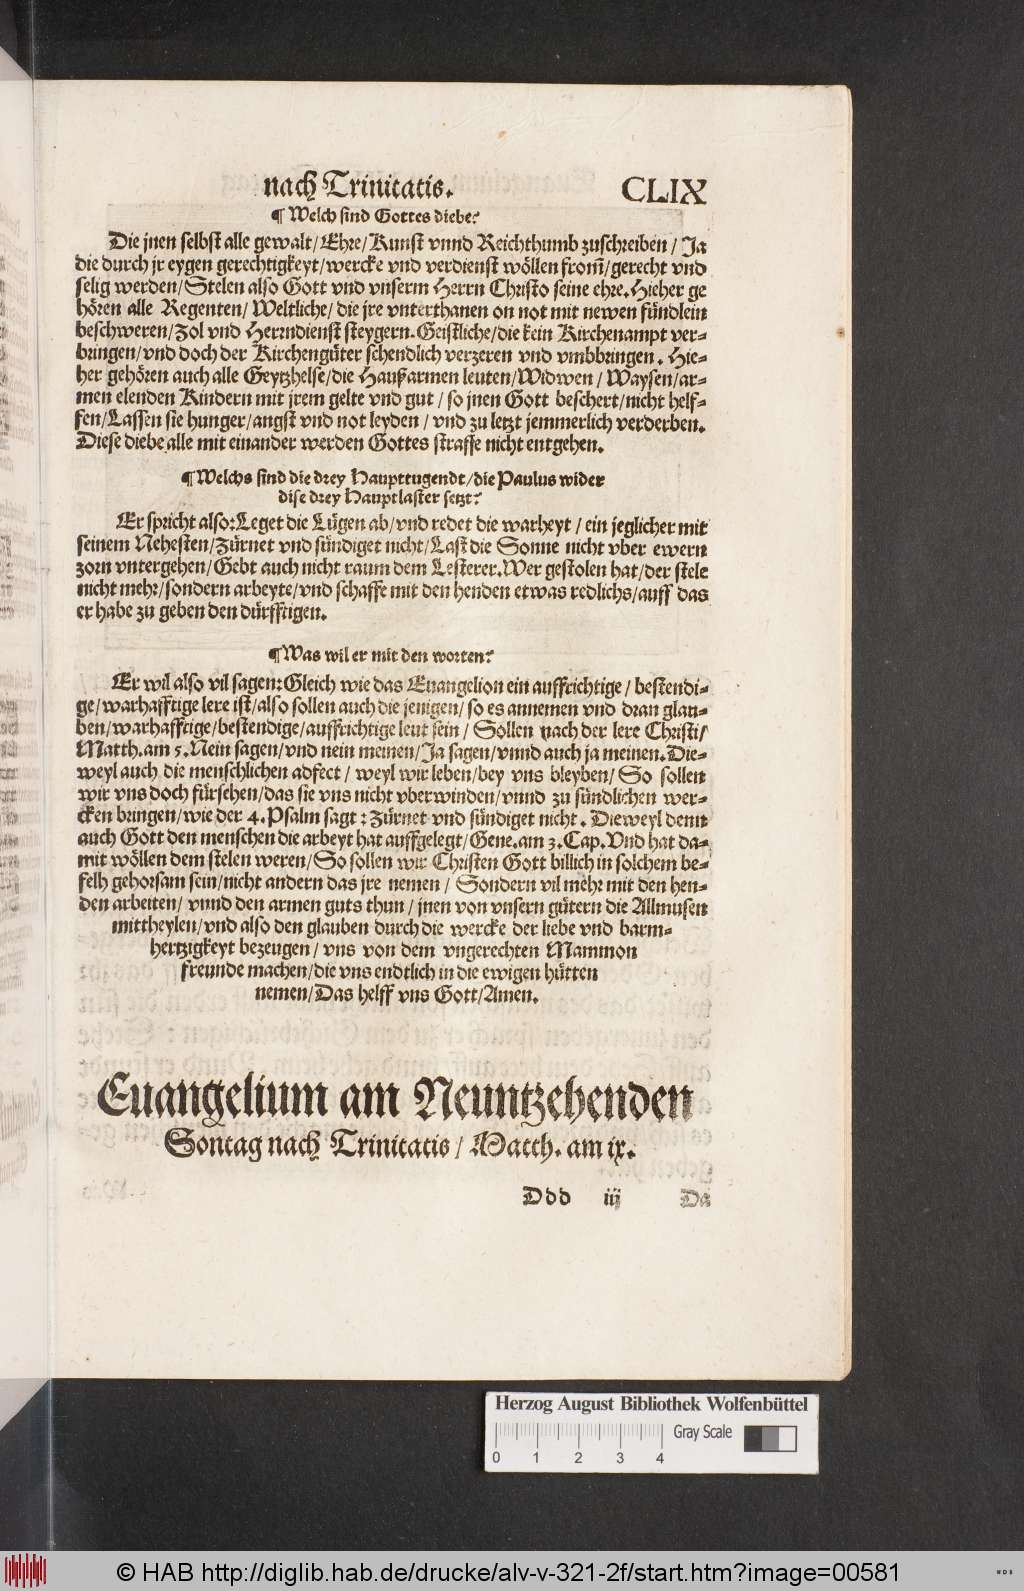 nach Trinitatis. CLIX
¶ Welch sind Gottes diebe?
Die jnen selbst alle gewalt/Ehre/Kunst vnnd Reichthumb zuschreiben/Ja
die durch jr eygen gerechtigkeyt/wercke vnd verdienst wöllen from̃/gerecht vnd
selig werden/Stelen also Gott vnd vnserm Herrn Christo seine ehre.Hieher ge
hören alle Regenten/Weltliche/die jre vnterthanen on not mit newen fündlein
beschweren/Zol vnd Herrndienst steygern.Geistliche/die kein Kirchenampt ver-
bringen/vnd doch der Kirchengüter schendlich verzeren vnd vmbbringen. Hie-
her gehören auch alle Geytzhelse/die Haußarmen leuten/Widwen/Waysen/ar-
men elenden Kindern mit jrem gelte vnd gut/so jnen Gott beschert/nicht helf-
fen/Lassen sie hunger/angst vnd not leyden/vnd zu letzt jemmerlich verderben.
Diese diebe alle mit einander werden Gottes straffe nicht entgehen.
¶Welchs sind die drey Haupttugendt/die Paulus wider
dise drey Hauptlaster setzt?
Er spricht also:Leget die Lügen ab/vnd redet die warheyt/ein jeglicher mit
seinem Nehesten/Zürnet vnd sündiget nicht/Last die Sonne nicht vber ewern
zorn vntergehen/Gebt auch nicht raum dem Lesterer.Wer gestolen hat/der stele
nicht mehr/sondern arbeyte/vnd schaffe mit den henden etwas redlichs/auff das
er habe zu geben den dürfftigen.
¶Was wil er mit den worten?
Er wil also vil sagen:Gleich wie das Euangelion ein auffrichtige/bestendi-
ge/warhafftige lere ist/also sollen auch die jenigen/so es annemen vnd dran glau-
ben/warhafftige/bestendige/auffrichtige leut sein/Sollen nach der lere Christi/
Matth.am 5.Nein sagen/vnd nein meinen/Ja sagen/vnnd auch ja meinen.Die-
weyl auch die menschlichen adfect/weyl wir leben/bey vns bleyben/So sollen
wir vns doch fürsehen/das sie vns nicht vberwinden/vnnd zu sündlichen wer-
cken bringen/wie der 4.Psalm sagt:Zürnet vnd sündiget nicht.Dieweyl denn
auch Gott den menschen die arbeyt hat auffgelegt/Gene.am 3.Cap.Vnd hat da-
mit wöllen dem stelen weren/So sollen wir Christen Gott billich in solchem be-
felh gehorsam sein/nicht andern das jre nemen/Sondern vil mehr mit den hen-
den arbeiten/vnnd den armen guts thun/jnen von vnsern gütern die Allmusen
mittheylen/vnd also den glauben durch die wercke der liebe vnd barm-
hertzigkeyt bezeugen/vns von dem vngerechten Mammon
freunde machen/die vns endtlich in die ewigen hütten
nemen/Das helff vns Gott/Amen.
Euangelium am Neuntzehenden
Sontag nach Trinitatis/Matth.am ix.
Ddd iij Da
Herzog August Bibliothek Wolfenbüttel
Gray Scale
0 1 2 3 4
© HAB http://diglib.hab.de/drucke/alv-v-321-2f/start.htm?image=00581